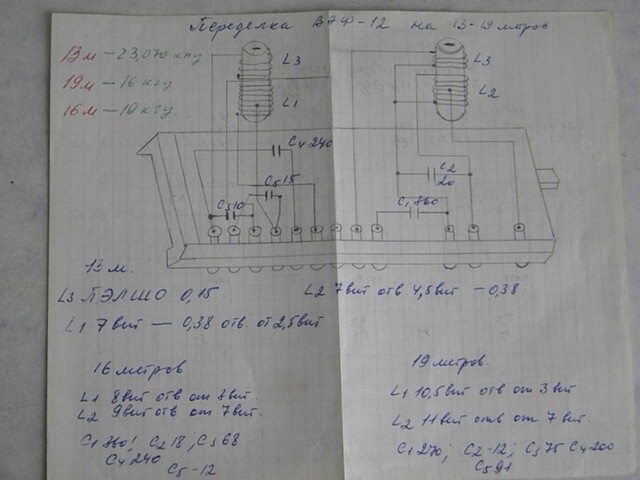 Переделка ВЭФ-12 на 13-19 метров
13м - 23,070 кгц
19м - 16 кгц
16м - 19 кгц.
L3
L1
L3
L2
C4 240
C5 15
C3 10
C2
20
C1 360
13 м.
L3 ПЭЛШО 0,15
L2 7вит отв 4,5вит - 0,38
L1 7 вит — 0,38 отв. от 2,5вит
16 метров
L1 8вит отв от 3вит.
L2 9вит отв от 7вит.
C1 360! C2 18; C3 68
C4 240
C5 - 12
19 метров.
L1 10,5вит отв от 3 вит
L2 11вит отв от 7 вит.
C1 270; C2-12; C3 75 C4 200
C5 91